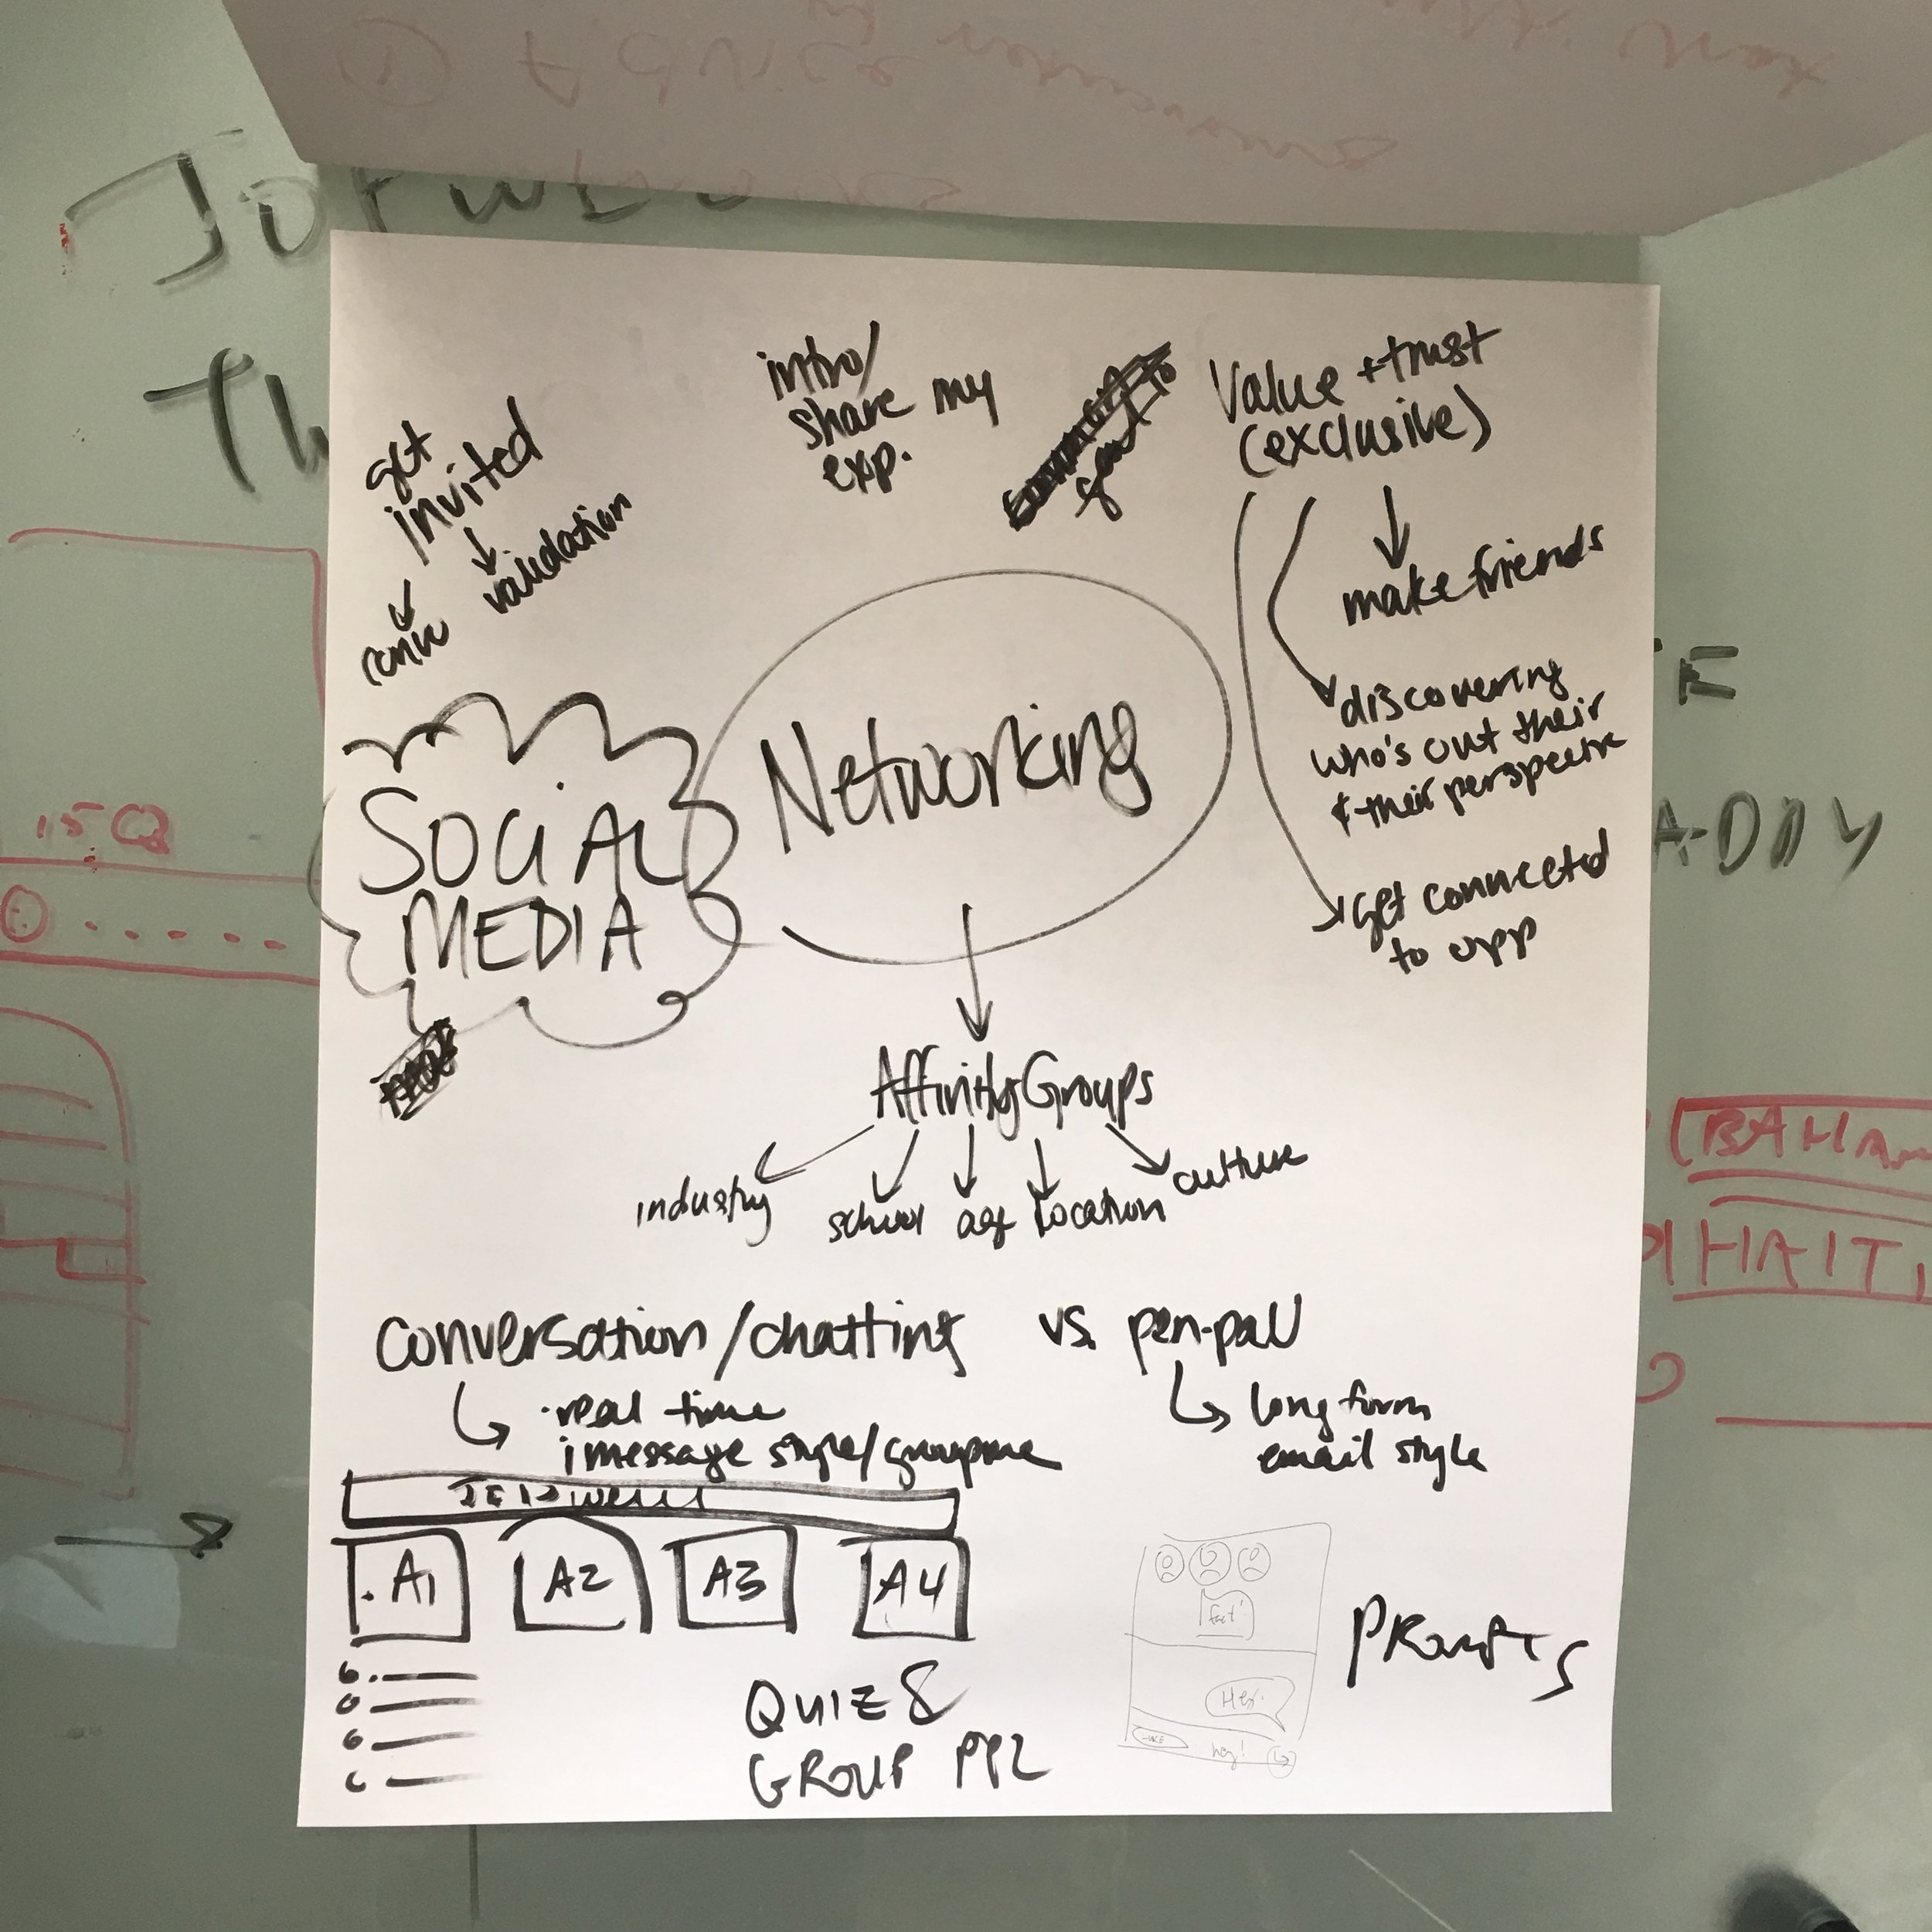 ① Advice
get
invited
validation
intro/
share my
exp.
Value + trust
(exclusive)
make friends
discovering
who's out their
& their perspective
get connected
to opp
SOCIAL
MEDIA
Networking
Affinity Groups
industry
school
age
location
culture
conversation/chatting vs. pen-pal
· real time
imessage style/groupme
long form
email style
A1
A2
A3
A4
QUIZ &
GROUP PPL
fact!
Hey.
hey!
PROMPTS
15Q
E
ADDY
(BAHAM
HAITI